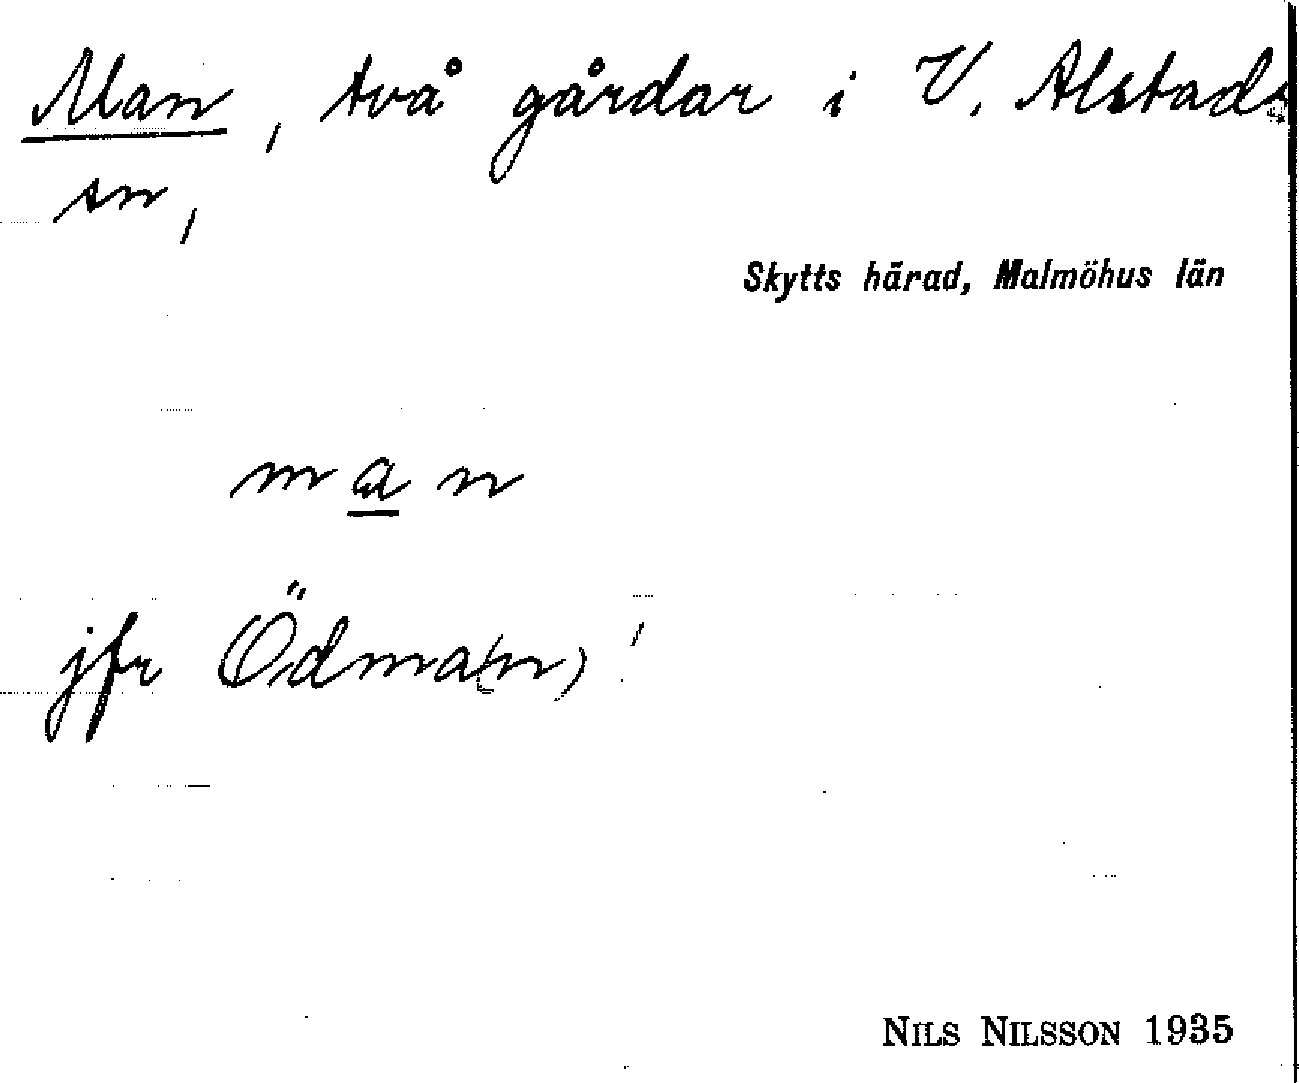 Man, två gårdar i V. Alstads
sn,
Skytts härad, Malmöhus län
man
jfr Ödma(n)!
NILS NILSSON 1935